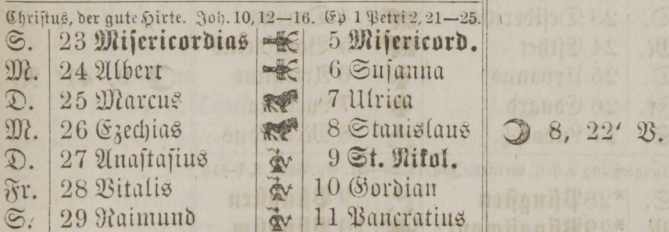 Christus, der gute Hirte. Joh. 10, 12—16. Ep 1 Petri 2, 21—25.
S. 23 Misericordias 5 Misericord.
M. 24 Albert 6 Susanna
D. 25 Marcus 7 Ulrica
M. 26 Ezechias 8 Stanislaus ☽ 8, 22' V.
D. 27 Anastasius 9 St. Nikol.
Fr. 28 Vitalis 10 Gordian
S. 29 Raimund 11 Pancratius